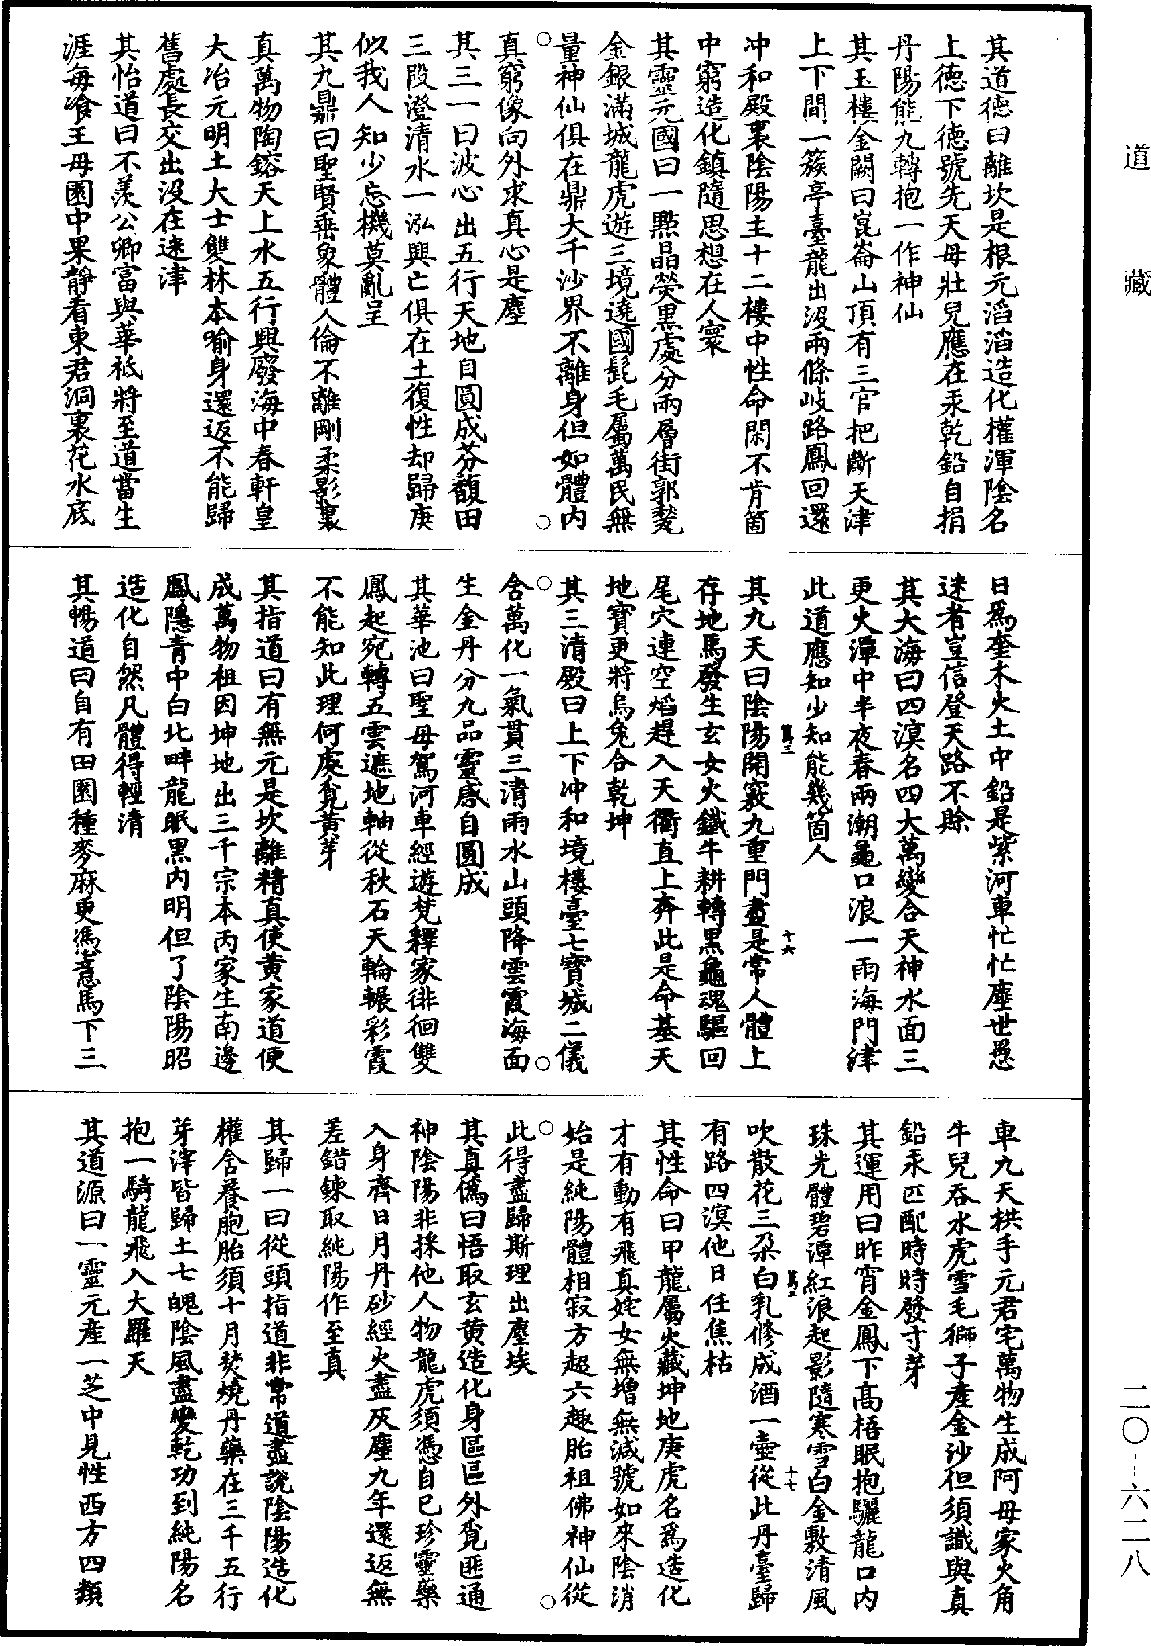 道藏
二〇-六二八
其道德曰離坎是根元滔滔造化權渾陰名
上德下德號先天母壯兒應在汞乾鉛自捐
丹陽能九轉抱一作神仙
其玉樓金闕曰崑崙山頂有三官把斷天津
上下間一簇亭臺龍出沒兩條岐路鳳回還
冲和殿裏陰陽主十二樓中性命閑不肯箇
中窮造化鎮隨思想在人寰
其靈元國曰一點晶熒黑處分兩層街郭甃
金銀滿城龍虎遊三境遶國髭毛屬萬民無
量神仙俱在鼎大千沙界不離身但如體內
真窮像向外求真心是塵
其三一曰波心出五行天地自圓成芬馥田
三段澄清水一泓興亡俱在土復性却歸庚
似我人知少忘機莫亂呈
其九鼎曰聖賢垂象體人倫不離剛柔影裏
真萬物陶鎔天上水五行興廢海中春軒皇
大冶元明土大士雙林本喻身還返不能歸
舊處長交出沒在迷津
其怡道曰不羨公卿富與華祗將至道當生
涯每飡王母園中果靜看東君洞裏花水底
日為奎木火土中鉛是紫河車忙忙塵世愚
迷者豈信登天路不賒
其大海曰四溟名四大萬變合天神水面三
更火潭中半夜春兩潮龜口浪一雨海門津
此道應知少知能幾箇人
其九天曰陰陽開竅九重門盡是常人體上
存地馬發生玄女火鐵牛耕轉黑龜魂驅回
尾穴連空焰趕入天衢直上奔此是命基天
地寶更將烏兔合乾坤
其三清殿曰上下冲和境樓臺七寶城二儀
含萬化一氣貫三清雨水山頭降雲霞海面
生金丹分九品靈感自圓成
其華池曰聖母駕河車經遊梵釋家徘徊雙
鳳起宛轉五雲遮地軸從秋石天輪輾彩霞
不能知此理何處覓黃芽
其指道曰有無元是坎離精真使黃家道便
成萬物祖因坤地出三千宗本丙家生南邊
鳳隱青中白北畔龍眠黑內明但了陰陽昭
造化自然凡體得輕清
其暢道曰自有田園種麥麻更馮意馬下三
車九天拱手元君宅萬物生成阿母家火角
牛兒吞水虎雪毛獅子產金沙但須識與真
鉛汞匹配時時發寸芽
其運用曰昨宵金鳳下高梧眠抱驪龍口內
珠光體碧潭紅浪起影隨寒雪白金敷清風
吹散花三朶白乳修成酒一壺從此丹臺歸
有路四溟他日任焦枯
其性命曰甲龍屬火藏坤地庚虎名為造化
才有動有飛真姹女無增無減號如來陰消
始是純陽體相寂方超六趣胎祖佛神仙從
此得盡歸斯理出塵埃
其真僞曰悟取玄黃造化身區區外覓匪通
神陰陽非採他人物龍虎須憑自己珍靈藥
入身齊日月丹砂經火盡灰塵九年還返無
差錯鍊取純陽作至真
其歸一曰從頭指道非常道盡說陰陽造化
權含養胞胎須十月焚燒丹藥在三千五行
芽滓皆歸土七魄陰風盡變乾功到純陽名
抱一騎龍飛入大羅天
其道源曰一靈元產一芝中見性西方四類